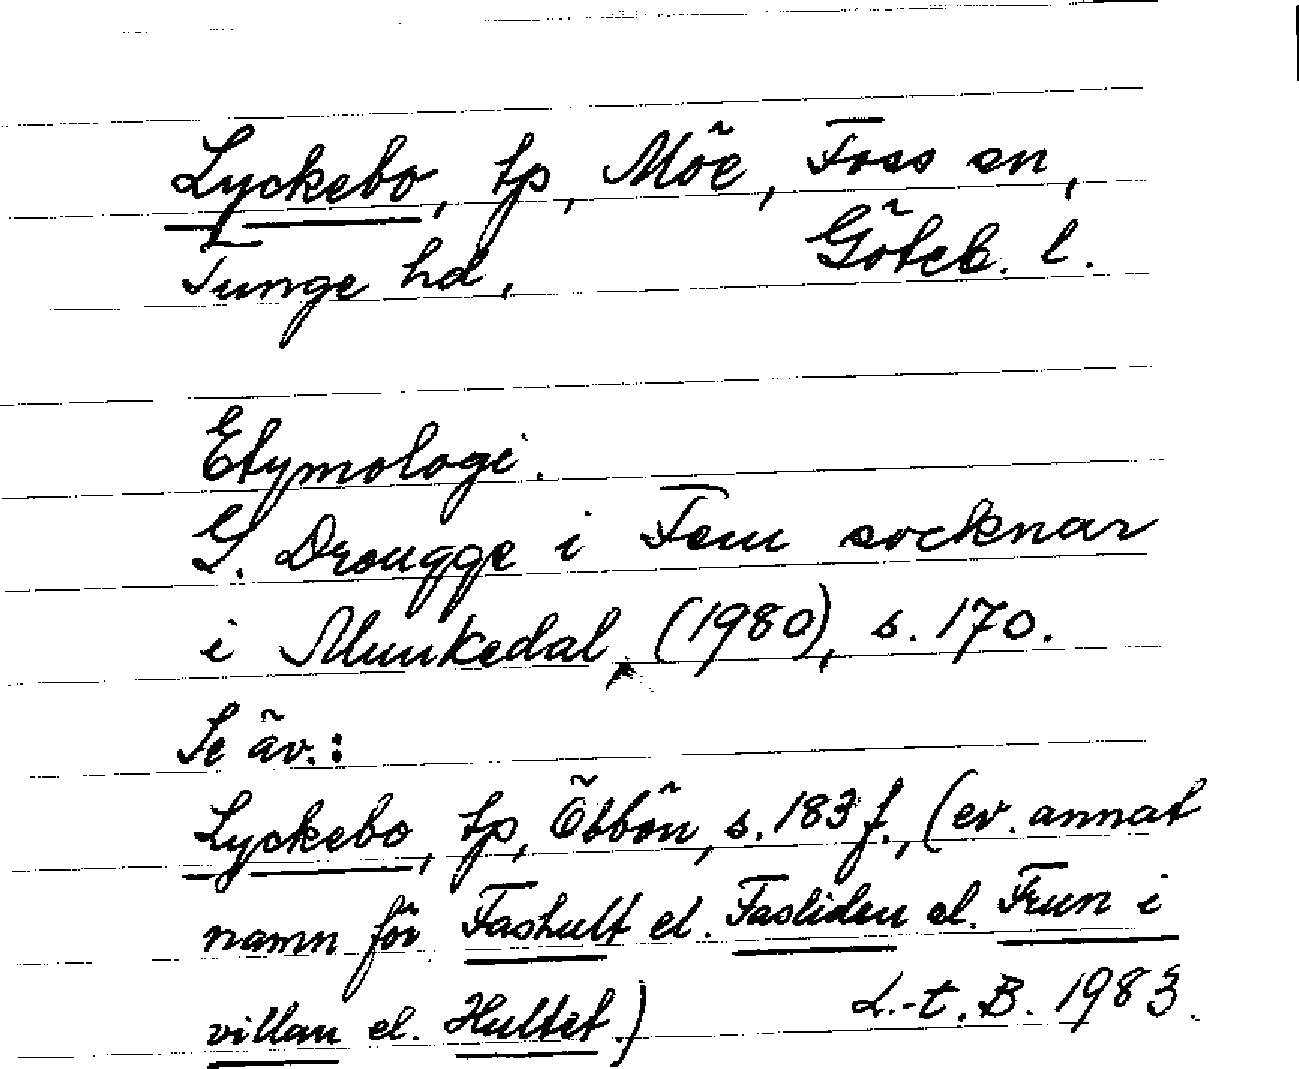 Lyckebo, tp, Möe, Foss sn,
Tunge hd, Göteb. l.
Etymologi.
G. Drougge i Fem socknar
i Munkedal, (1980), s. 170.
Se äv.:
Lyckebo, tp, Öbbön, s. 183 f., (ev. annat
namn för Fashult el. Fasliden el. Frun i
villan el. Hultet.) L.-t. B. 1983.